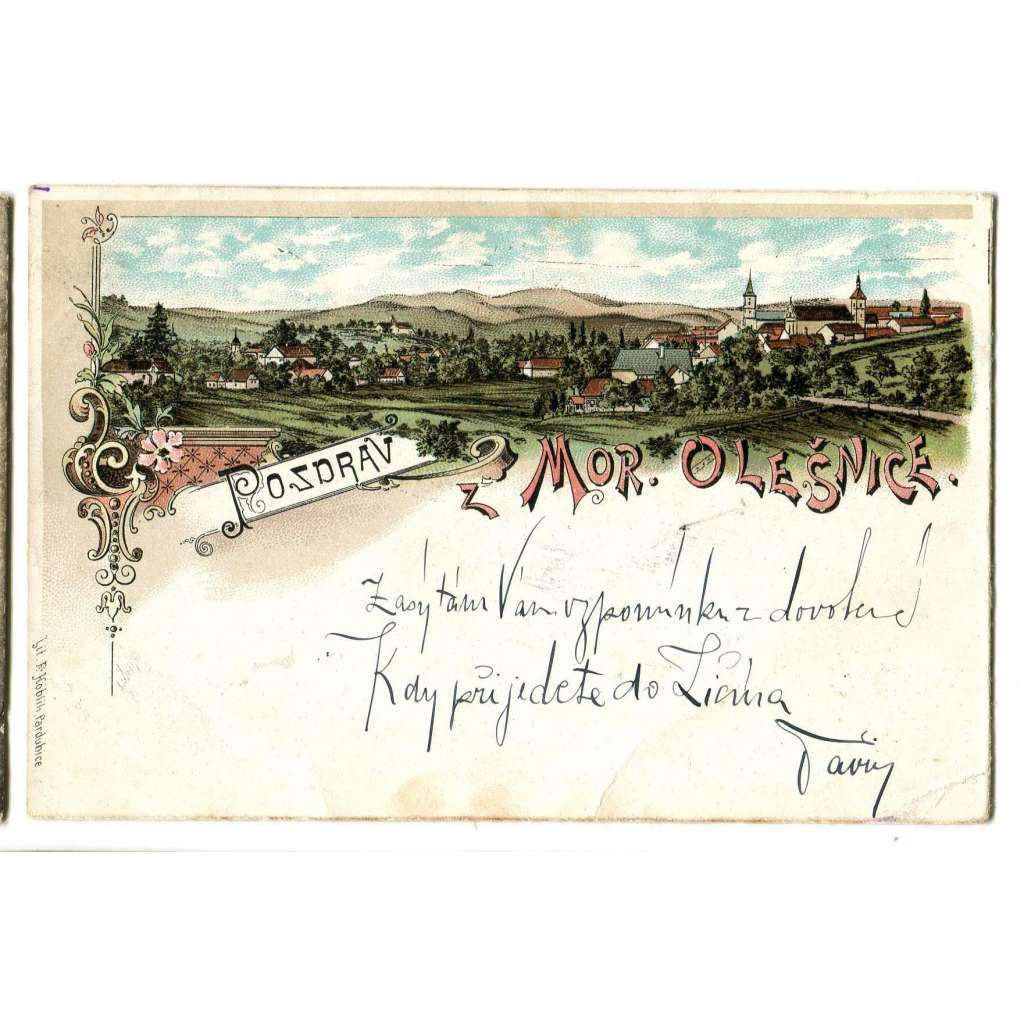 POZDRAV
Z MOR. OLEŠNICE.
Zasýlám Vám vzpomínku z dovolené
Kdy přijedete do
Lit. F. Hoblík Pardubice